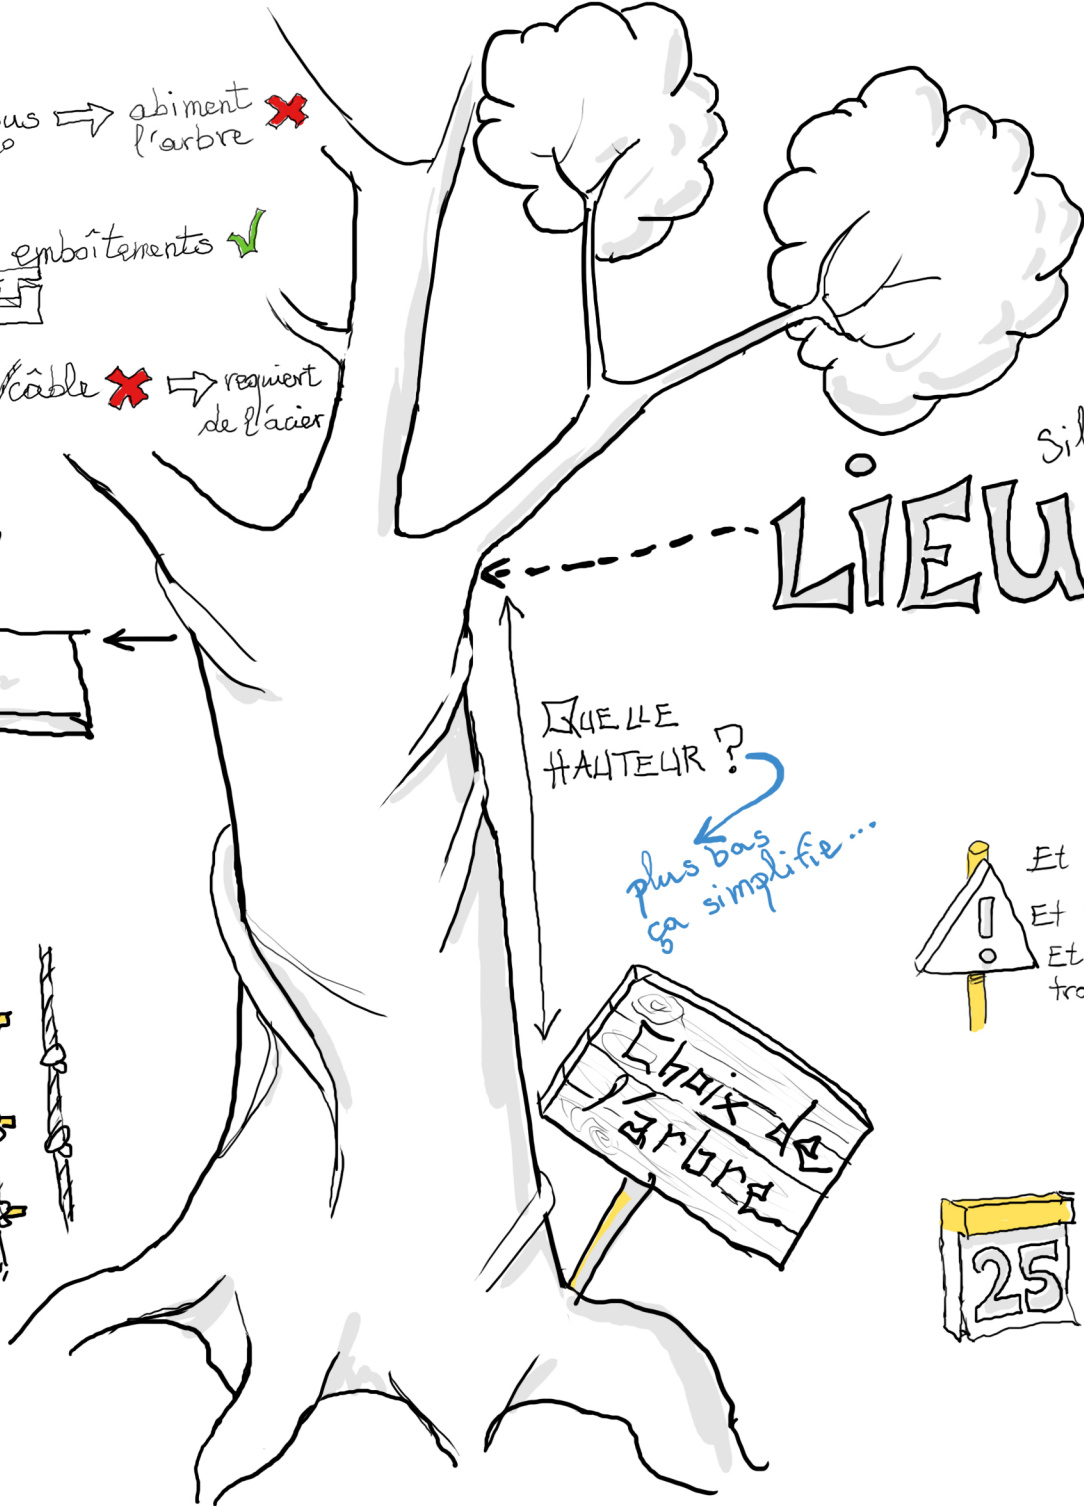 abiment
l'arbre
emboîtements
câble
requiert
de l'acier
LIEU
QUELLE
HAUTEUR ?
plus bas
ça simplifie...
Et
Et
Et
Choix de
l'arbre
25